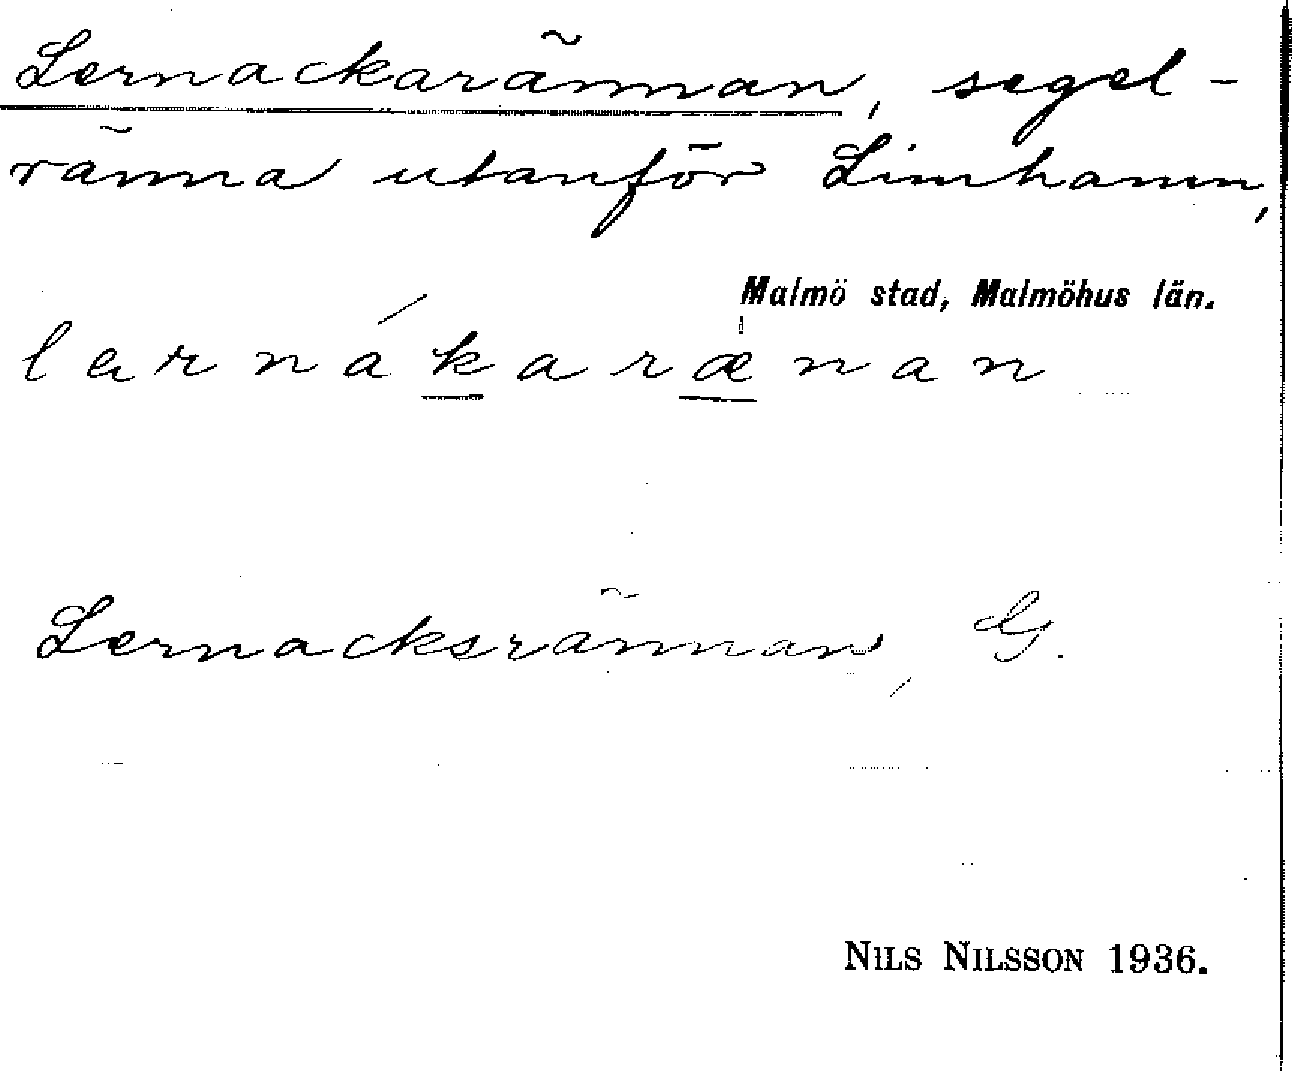 Lernackarännan, segel-
ränna utanför Limhamn,
Malmö stad, Malmöhus län.
larnákarænan
Lernacksrännan, G.
NILS NILSSON 1936.